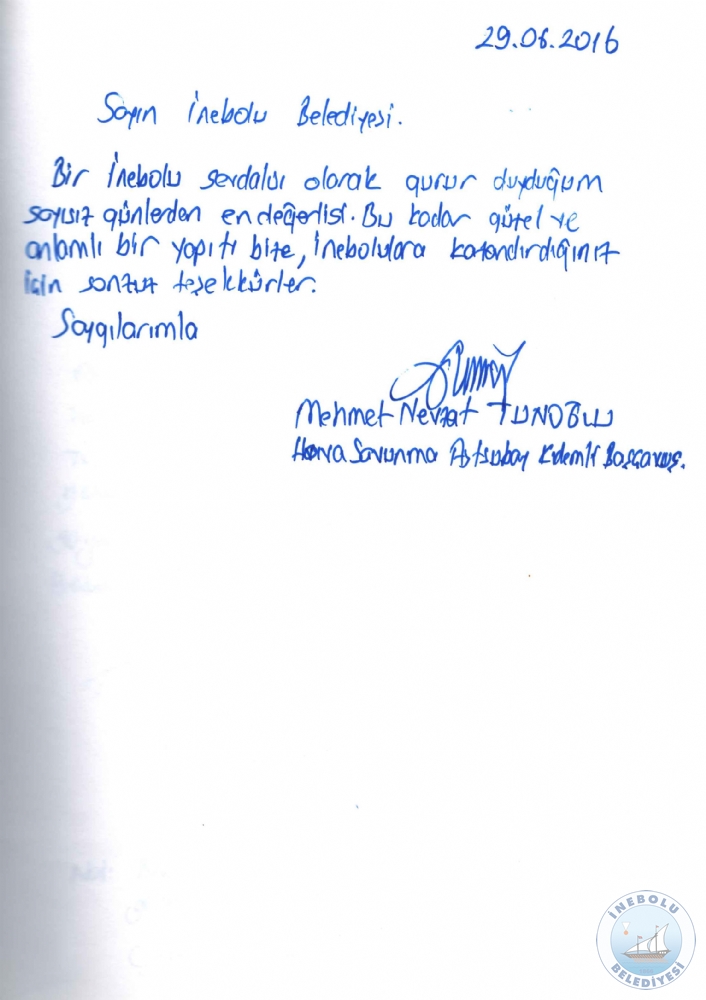 29.06.2016
Sayın İnebolu Belediyesi.
Bir İnebolu sevdalısı olarak gurur duyduğum
sayısız günlerden en değerlisi. Bu kadar güzel ve
anlamlı bir yapıtı bize, İnebolulara kazandırdığınız
için sonsuz teşekkürler.
Saygılarımla
Mehmet Nevzat
Hava Savunma Astsubay Kıdemli Başçavuş.
İNEBOLU
BELEDİYESİ